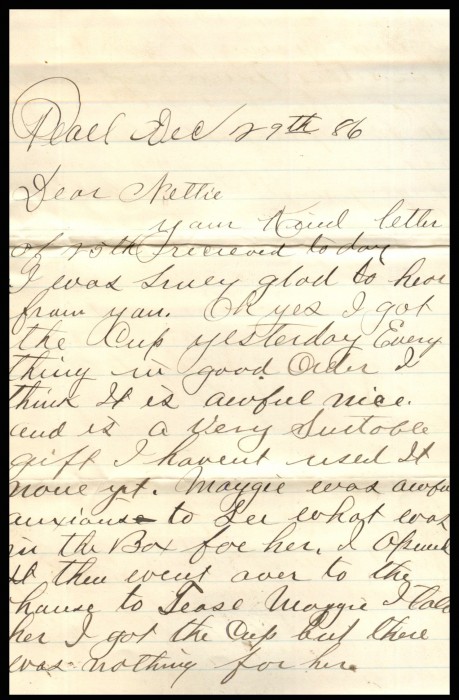 Pearl Dec 29th 86
Dear Nettie
your Kind letter
of 25th recieved to day
I was surey glad to hear
from you. Oh yes I got
the Cup yesterday Every
thing in good Order I
think It is awful nice.
and is a Very Suitable
gift I havent used It
none yt. Maggie was awful
anxious to See what was
in the Box for her. I opened
It then went over to the
house to Tease Maggie I told
her I got the Cup but there
was nothing for her.